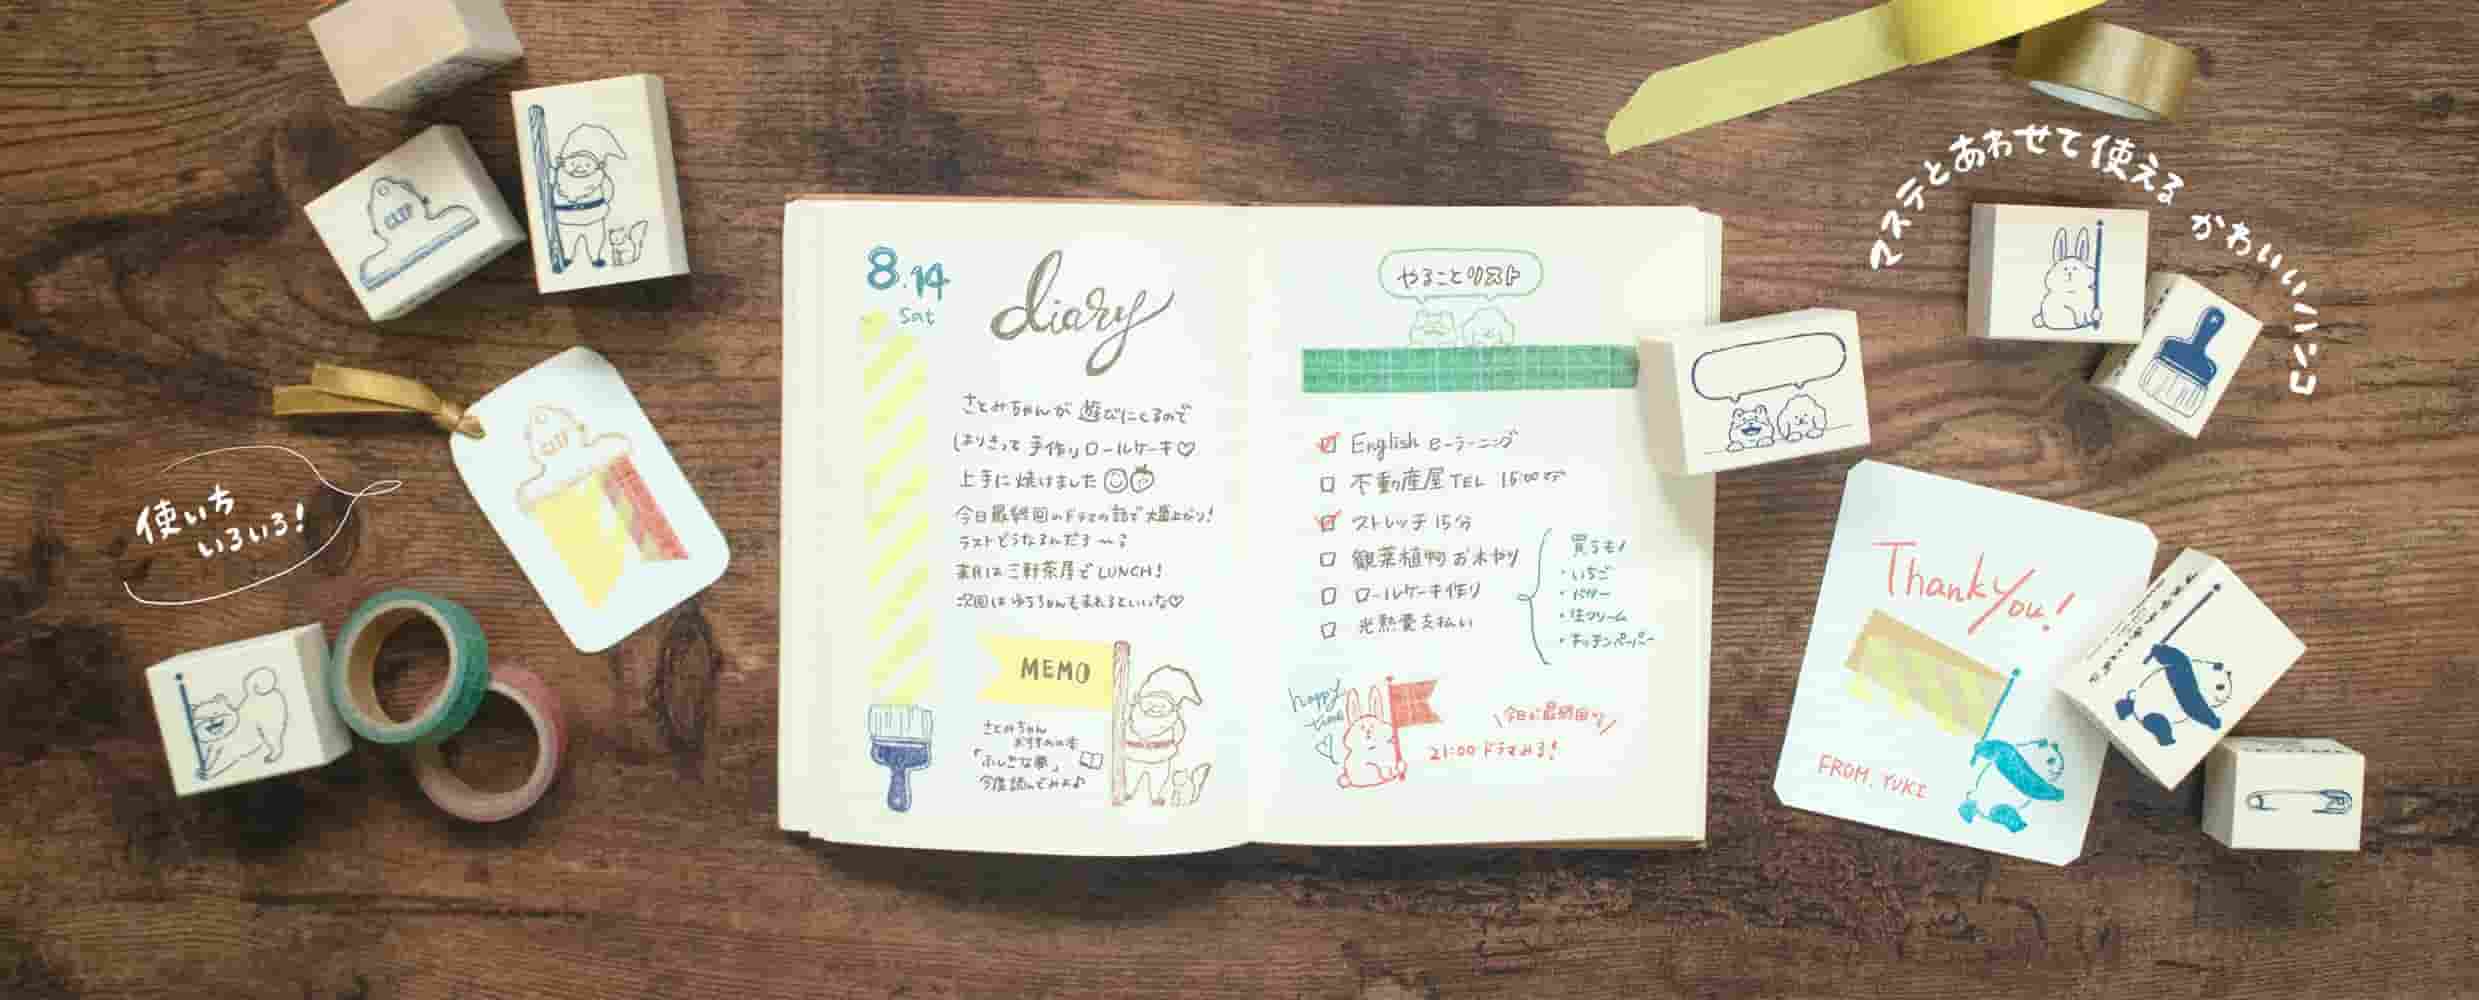 マステとあわせて使える かわいいハンコ
使いち
いろいろ!
CLIP
CLIP
8.14
Sat
diary
さとみちゃんが 遊びにくるので
はりきって 手作りロールケーキ♡
上手に焼けました
今日最終回のドラマの話で大盛上がり!
ラストどうなるんだろ〜?
来月は三軒茶屋でLUNCH!
次回はゆうちゃんも来れるといいな♡
MEMO
さとみちゃん
おすすめの本
「ふしぎな夢」
今度読んでみよ♪
やることリスト
English eラーニング
不動産屋TEL 15:00まで
ストレッチ15分
観葉植物お水やり
ロールケーキ作り
光熱費支払い
買うもの
・いちご
・バター
・生クリーム
・キッチンペーパー
happy
time
\今日が最終回!/
21:00 ドラマみる!
Thank You!
FROM. YUKI